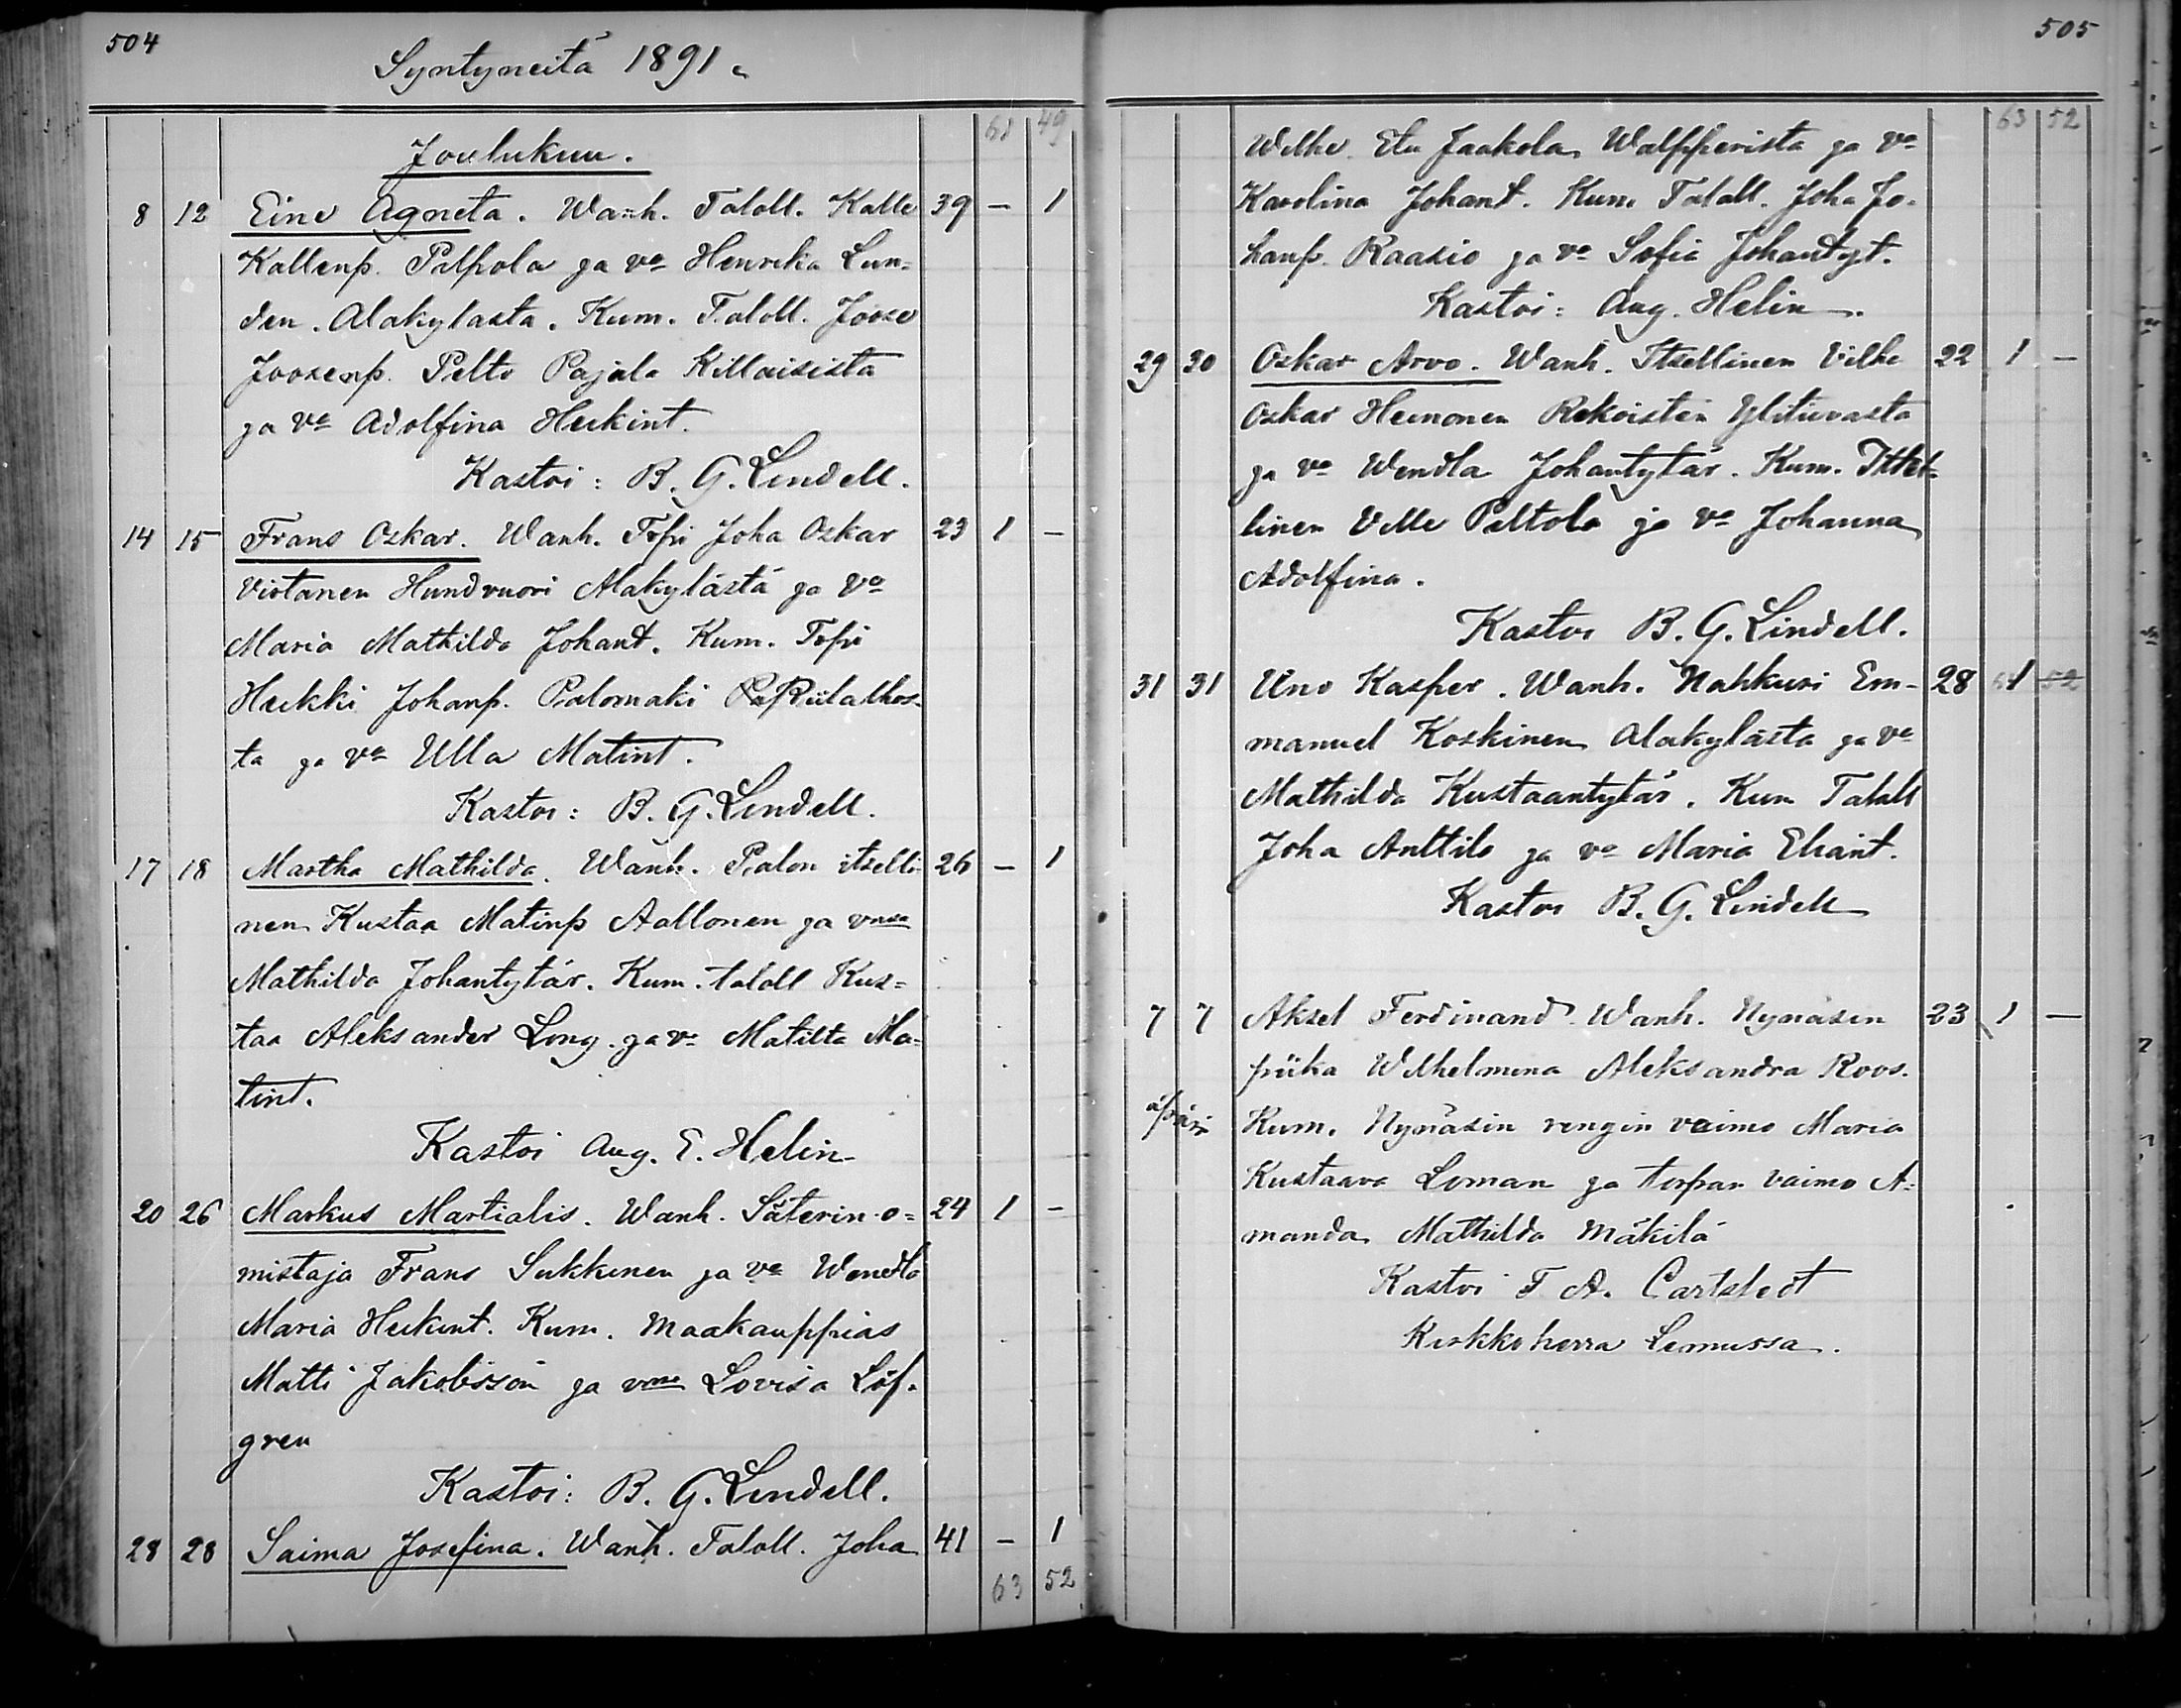 504
Syntyneitä 1891.
61 49
Joulukuu.
8 12 Eine Agneta. Wanh. Taloll. Kalle 39 – 1
Kallenp. Palpola ja vo Henrika Lun=
den. Alakylasta. Kum. Taloll. Joose
Joosenp. Pelto Pajala Killaisista
ja vo Adolfina Heikint.
Kastoi: B. G. Lindell.
14 15 Frans Oskar. Wanh. Trpri Joha Oskar 23 1 –
Virtanen Hundvuori Alakylästä ja vo
Maria Mathilda Johant. Kum. Trpri
Heikki Johanp. Palomaki
ta ja vo Ulla Matint.
Kastoi: B. G. Lindell.
17 18 Martha Mathilda. Wanh. Palon itselli- 26 – 1
nen Kustaa Matinp Aallonen ja vnsa
Mathilda Johantytär. Kum. taloll Kus=
taa Aleksander Long. ja vo Matilta Ma=
tint.
Kastoi Aug. E. Helin
20 26 Markus Martialis. Wanh. Säterin o= 24 1 –
mistaja Frans Sukkinen ja vo Wendla
Maria Heikint. Kum. Maakauppias
Matti Jakobsson ja vmo Lovisa Löf-
gren
Kastoi: B. G. Lindell.
28 28 Saima Josefina. Wanh. Taloll. Joha 41 – 1
63 52
505
63 52
Wilhe. Etu Jaakola Walpperista ja vo
Karolina Johant. Kum. Taloll. Joha Jo-
hanp. Raasio ja vo Sofia Johantyt.
Kastoi: Aug. Helin.
29 30 Oskar Arvo. Wanh. Itsellinen Vilhe 22 1 –
Oskar Heinonen Rekoisten Ylituvasta
ja vo Wendla Johantytär. Kum. Itsel-
linen Ville Peltola ja vo Johanna
Adolfina.
Kastoi B. G. Lindell.
31 31 Uno Kasper. Wanh. Nahkuri Em- 28 64 1 52
manuel Koskinen Alakylästa ja vo
Mathilda Kustaantytär. Kum Taloll
Joha Anttila ja vo Maria Eliant.
Kastoi B. G. Lindell
7 7 Aksel Ferdinand. Wanh. Nynäsin 23 1 –
piika Wilhelmina Aleksandra Roos.
äpärä Kum. Nynäsin rengin vaimo Maria
Kustaava Loman ja torpan vaimo A=
manda Mathilda Mäkilä
Kastoi F. A. Cartstedt
Kirkkoherra Lemussa.